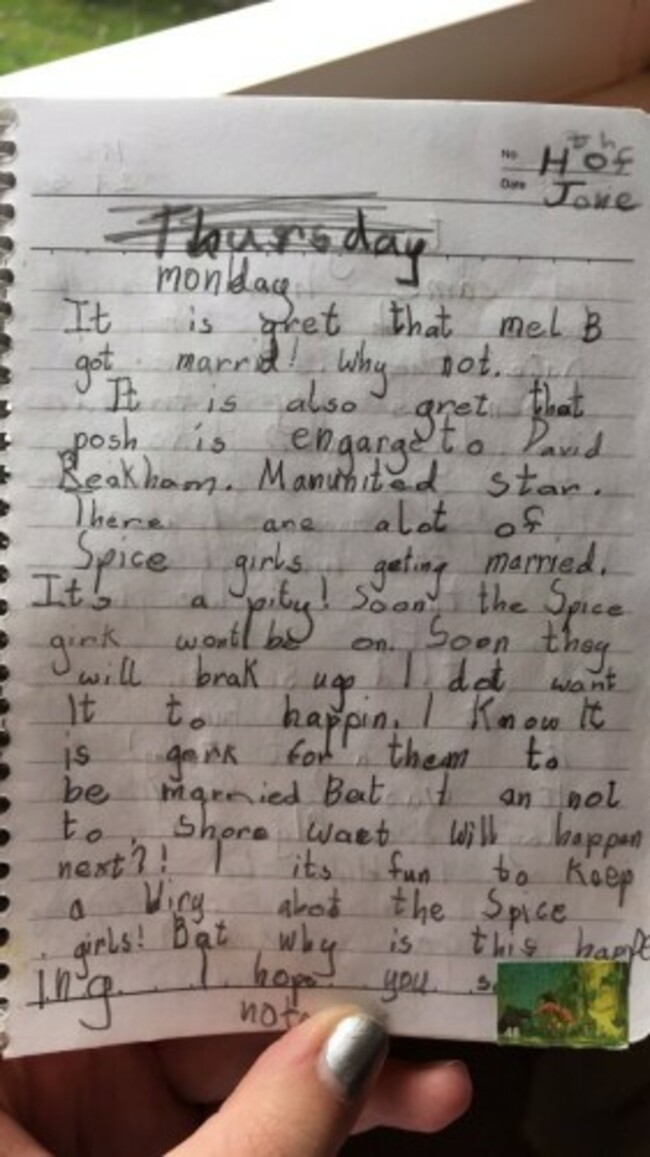 No. H th of
Date Jone
Thursday
monday
It is gret that mel B
got marrid! Why not.
It is also gret that
posh is engarge to David
Beakham. Manunited star.
There are alot of
Spice girls geting married.
It's a pity! Soon the Spice
girls wontl be on. Soon they
will brak up I dot want
It to happin. I Know It
is for them to
be married Bat I an not
to shore waet will happen
next?! I its fun to Keep
a Diry abot the Spice
girls! Bat why is this happe
ing. I hope you
not